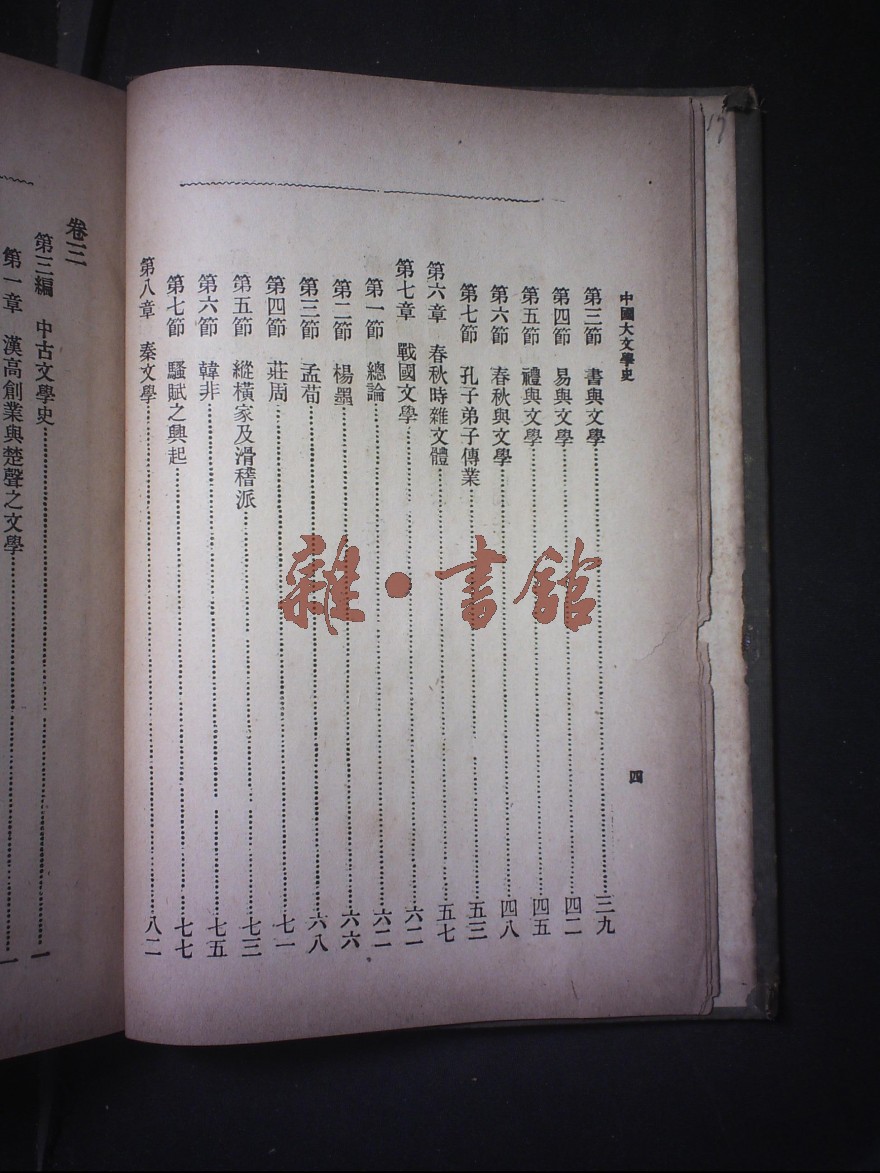 中國大文學史
四
第三節　書與文學 三九
第四節　易與文學 四二
第五節　禮與文學 四五
第六節　春秋與文學 四八
第七節　孔子弟子傳業 五三
第六章　春秋時雜文體 五七
第七章　戰國文學 六二
第一節　總論 六二
第二節　楊墨 六六
第三節　孟荀 六八
第四節　莊周 七一
第五節　縱橫家及滑稽派 七三
第六節　韓非 七五
第七節　騷賦之興起 七七
第八章　秦文學 八二
卷三
第三編　中古文學史 一
第一章　漢高創業與楚聲之文學 一
雜·書館